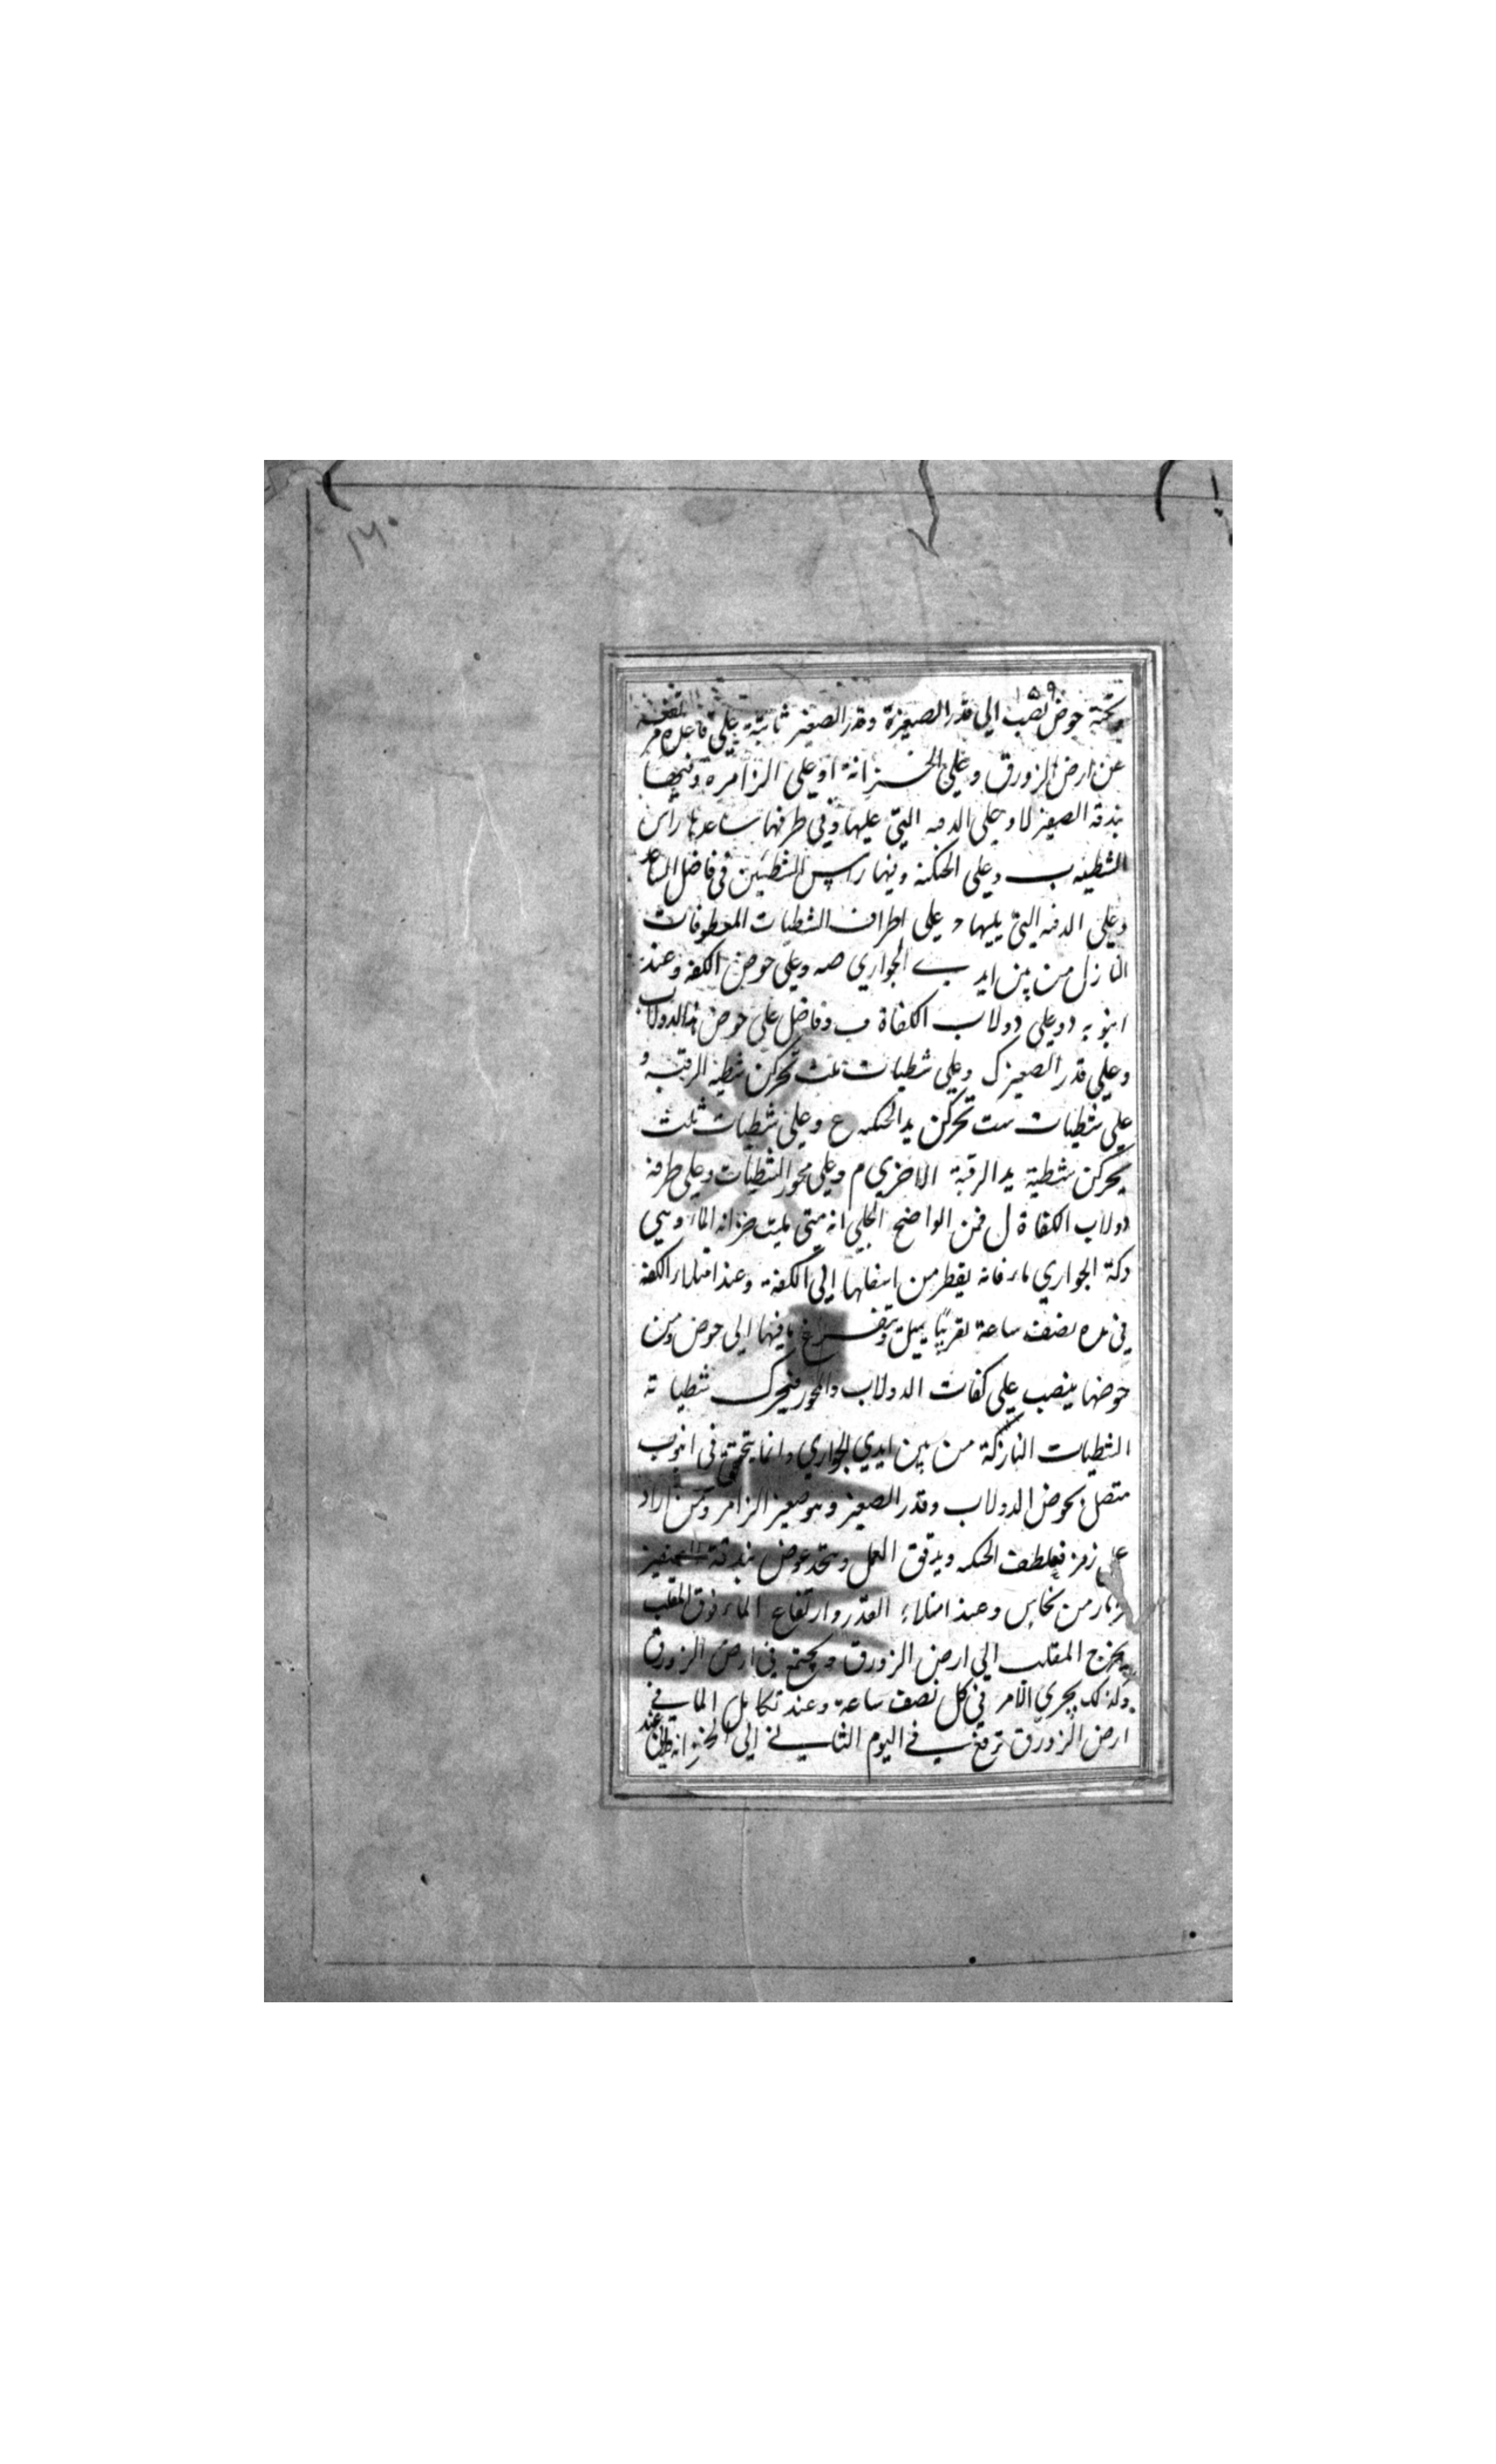 ١٦٠
١٥٩
وتحته حوض نصب الي قدر الصعيرة وقدر الصغير ثابتة علي قاعدة مرتفعه
عن ارض الزورق وعلي الخــزانة ا وعلي الزامره وفيها
بندقه الصعير لا وعلي الدفه التي عليها وفي طرفها ساعدها راس
الشطيه ب وعلي الحنكه وفيها راس الشطيتين في فاضل الساعد
وعلي الدفه التي يليها د علي اطراف الشطيات المعطوفات
النازل من بين ايدي الجواري صه وعلي حوض الكفه وعند
انبوبه د وعلي دولاب الكفاة ف وفاضل علي حوض هذا الدولاب
وعلي قدر الصعير ك وعلي شطيات ثلث تحركن شطيه الرقبه و
علي شطيات ست تحركن يد الحنكه ع وعلي شطيات ثلث
يحركن شطية يد الرقبة الاخري م وعلي محور الشطيات وعلي طرفه
دولاب الكفاة ل فمن الواضح الجلي انه متي مليت خزانه الماء وهي
دكة الجواري ماء فانه يقطر من اسفلها الي الكفة وعند امتلاء الكفة
في مده نصف ساعة تقريبًا يميل ويتفــرغ ما فيها الي حوض ومن
حوضها ينصب علي كفات الدولاب والمحور فيحرك شطيا ته
الشطيات النازلة من بين ايدي الجواري وانما يتحرق في انبوب
متصل بحوض الدولاب وقدر الصعير وهو صعير الزامر ومن اراد
علي زمر فيلطف الحنكه ويدقق العمل ويتخذ عوض بندقة الصفير
مزمار من نحاس وعند امتلاء القدر وارتفاع الماء فوق المقلب
يخرج المقلب الي ارض الزورق ويجتمع في ارض الزورق
وكذلك يجري الامر في كل نصف ساعة وعند تكامل الما في
ارض الزورق ترفع في اليوم الثاني الي الخزانه عند